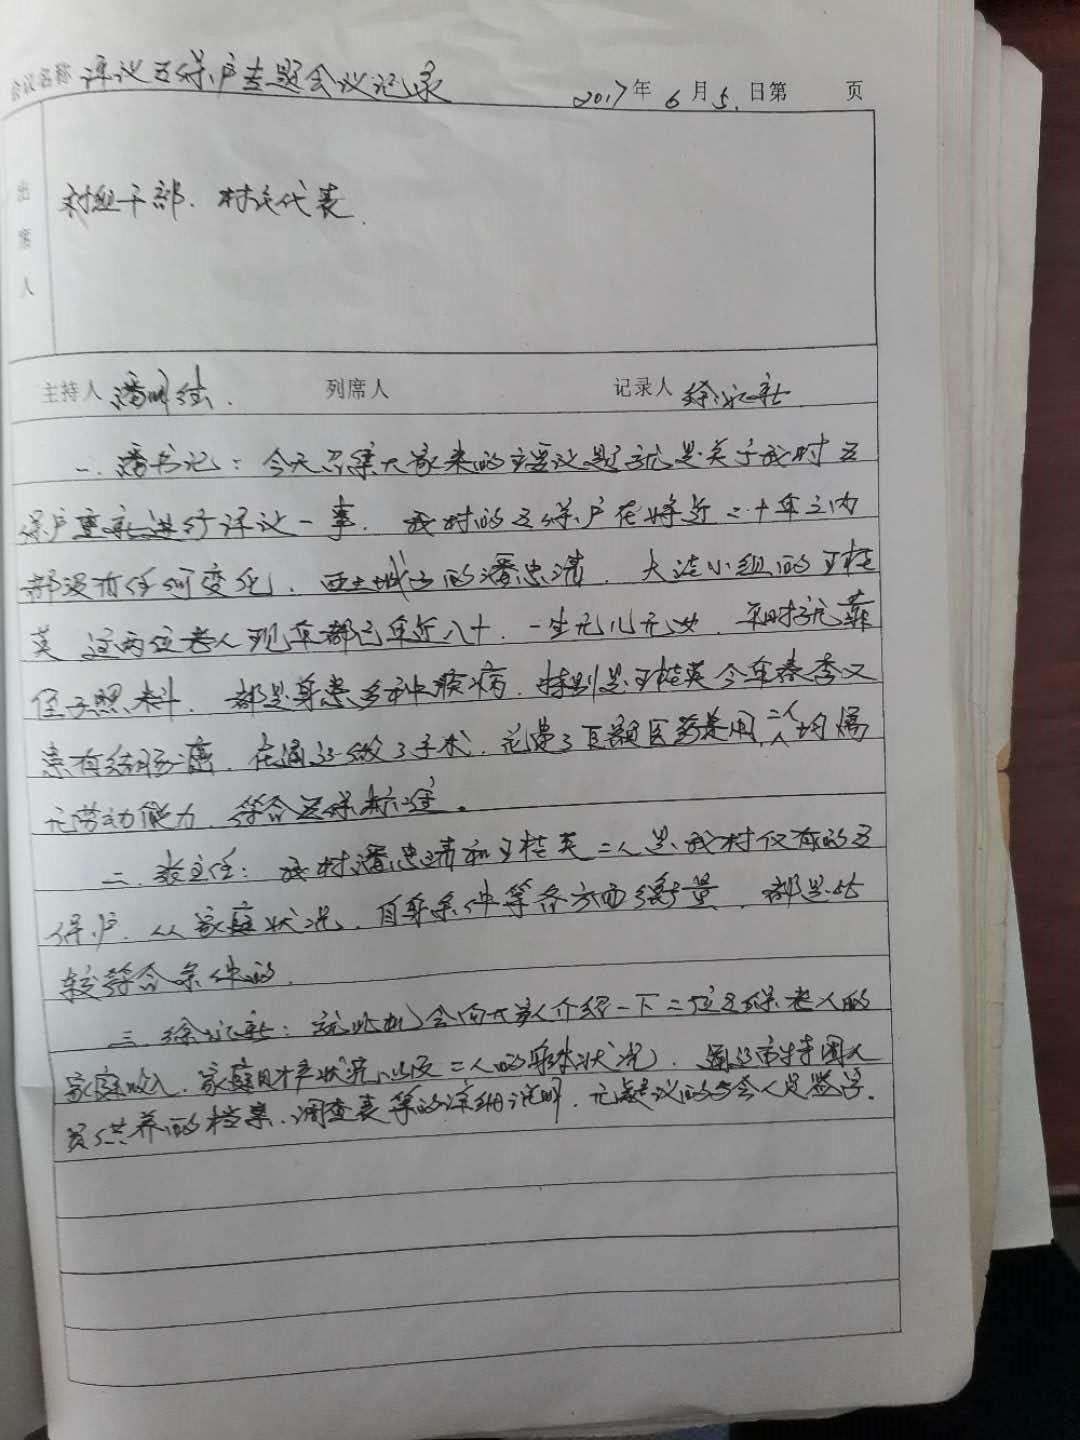 会议名称 评议五保户专题会议记录 2017年6月5日第 页
出席人
村组干部、村民代表.
主持人 潘 列席人 记录人 徐
一、潘书记：今天召集大家来的主要议题就是关于我村五
保户重新进行评议一事. 我村的五保户在将近二十年之内
都没有任何变化. 西土城子的潘忠清、大洼小组的王桂
英 这两位老人现年都已年近八十、一生无儿无女、平时就靠
侄子照料、都是身患多种疾病、特别是王桂英今年春季又
患有结肠癌、在通辽做了手术、花费了巨额医药费用,二人均属
无劳动能力、符合五保标准。
二、主任：我村潘忠清和王桂英二人是我村仅有的五
保户、从家庭状况、自身条件等各方面衡量、都是比
较符合条件的.
三、徐：就此机会向大家介绍一下二位五保老人的
家庭收入、家庭财产状况以及二人的身体状况、通辽市特困人
员供养的档案、调查表等的详细说明、无疑议的与会人员签字.